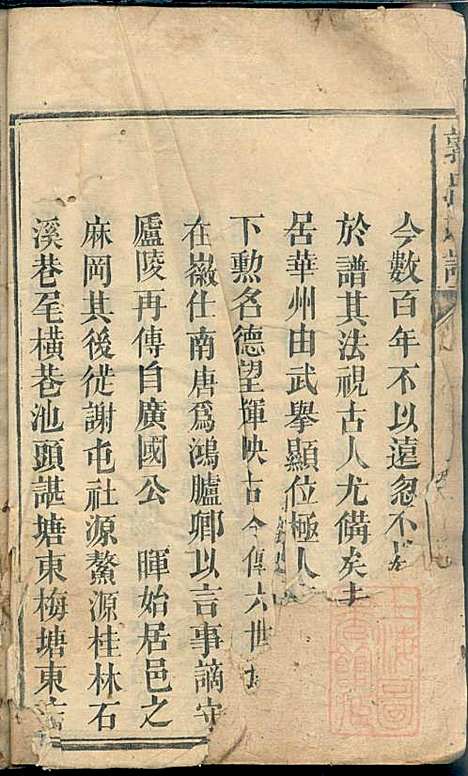 今數百年不以遠忽不
於譜其法視古人尤備矣
居華州由武舉顯位極人
下勳名德望輝映古今傳六世
在嶽仕南唐爲鴻臚卿以言事謫守
廬陵再傳自廣國公 暉始居邑之
麻岡其後徙謝屯社源鰲源桂林石
溪巷至橫巷池頭諶塘東梅塘東